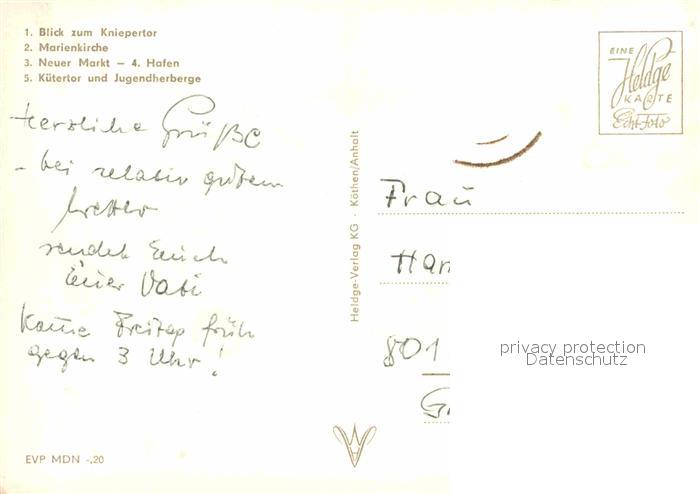 1. Blick zum Kniepertor
2. Marienkirche
3. Neuer Markt — 4. Hafen
5. Kütertor und Jugendherberge
Herzliche Grüße
- bei relativ gutem
Wetter
sendet Euch
Euer Vati
Komme Freitag früh
gegen 3 Uhr!
EVP MDN -,20
Heldge-Verlag KG · Köthen/Anhalt
EINE
Heldge
KARTE
Echt Foto
Frau
Han
801
privacy protection
Datenschutz